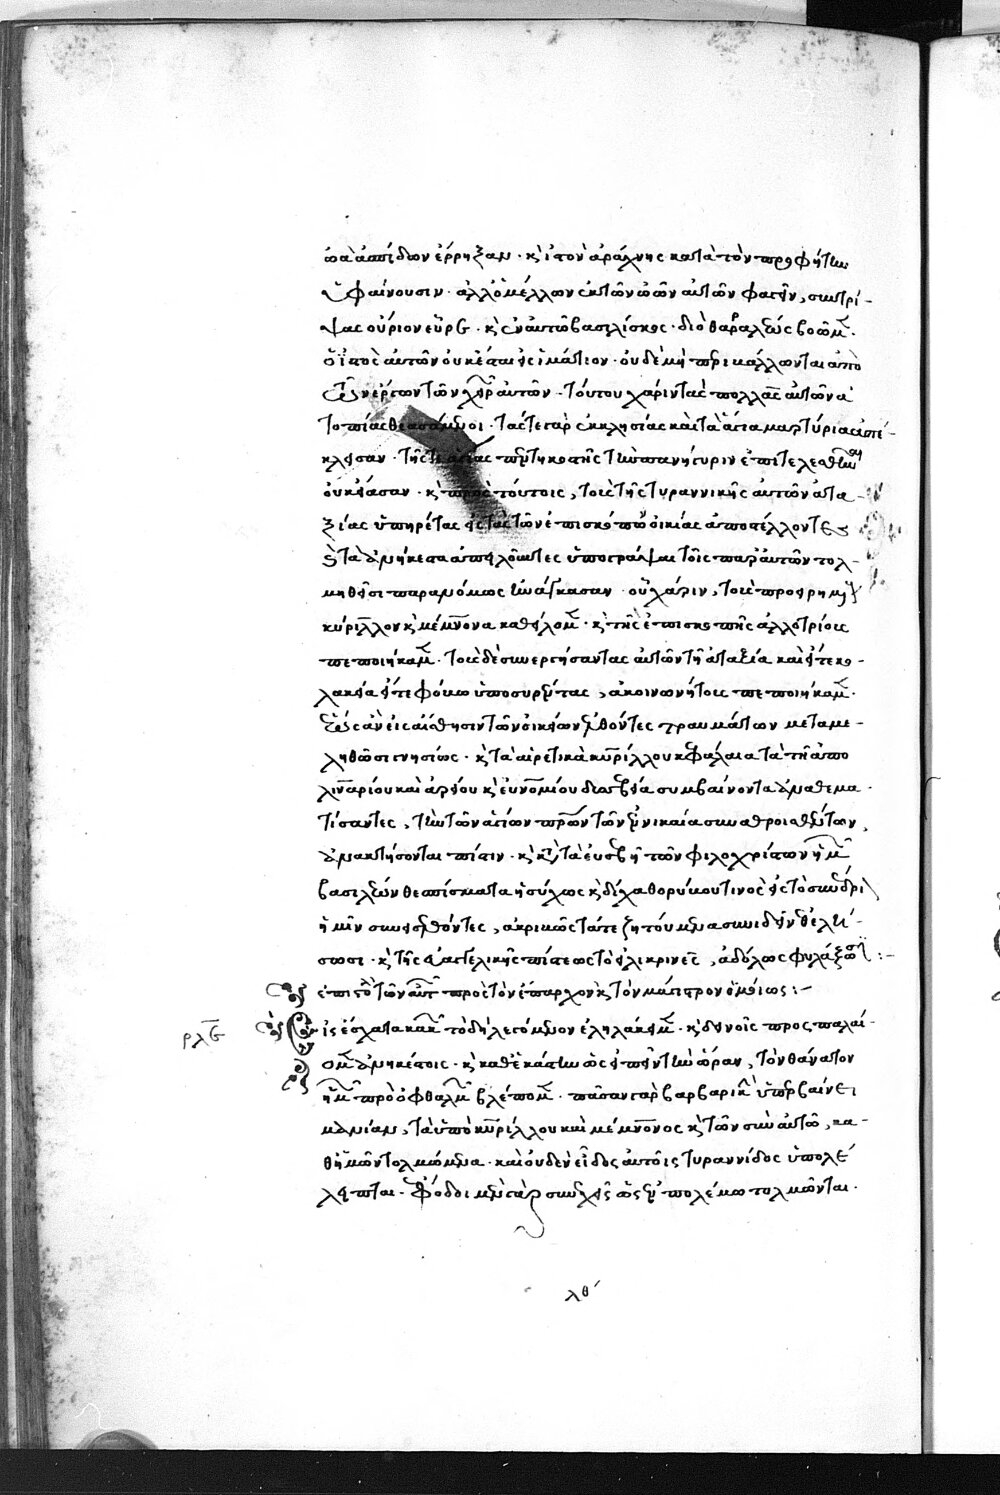 ὠὰ ἀσπίδων ἔρρηξαν · κ̀ ἱστὸν ἀράχνης κατὰ τὸν προφήτην
ὑφαίνουσιν · ἀλλ' ὁ μέλλων ἐκ τῶν ὠῶν αὐτῶν φαγεῖν, συντρί-
ψας οὔριον εὗρε · κ̀ ἐν αὐτῶ βασιλίσκος · διὸ θαρραλέως βοῶμεν ·
ὁ ἱστὸς αὐτῶν οὐκ ἔσται εἰς ἱμάτιον · οὐδὲ μὴ περιβάλλωνται ἀπὸ
τῶν ἔργων τῶν χειρῶν αὐτῶν · τούτου χάριν τὰς πολλὰς αὐτῶν ἀ
τοπίας θεασάμενοι · τάς τε γὰρ ἐκκλησίας καὶ τὰ ἅγια μαρτύρια ἀπέ-
κλεισαν · τῆς τε ἁγίας πεντηκοστῆς τὴν πανήγυριν ἐπιτελεσθῆναι
οὐκ εἴασαν · κ̀ πρὸς τούτοις, τοὺς τῆς τυραννικῆς αὐτῶν ἀτα-
ξίας ὑπηρέτας εἰς τὰς τῶν ἐπισκόπων οἰκίας ἀποστέλλοντες
κ̀ τὰ ἀνήκεστα ἀπειλοῦντες ὑπογράψαι τοῖς παρ' αὐτῶν τολ-
μηθεῖσι παρανόμως ἠνάγκασαν · οὗ χάριν, τοὺς προειρημένους
κύριλλον κ̀ μέμνονα καθείλομεν · κ̀ τῆς ἐπισκοπῆς ἀλλοτρίους
πεποιήκαμεν · τοὺς δὲ συνεργήσαντας αὐτῶν τῆ ἀταξία καὶ εἴτε κο-
λακεία εἴτε φόβω ὑποσυρέντας, ἀκοινωνήτους πεποιήκαμεν ·
ἕως ἂν εἰς αἴσθησιν τῶν οἰκείων ἐλθόντες τραυμάτων μεταμε-
ληθῶσι γνησίως · κ̀ τὰ αἱρετικὰ κυρίλλου κεφάλαια τὰ τῆ ἀπο
λιναρίου καὶ ἀρείου κ̀ εὐνομίου δυσσεβεία συμβαίνοντα ἀναθεμα-
τίσαντες, τὴν τῶν ἁγίων πατέρων τῶν ἐν νικαία συναθροισθέντων,
ἀνακτήσονται πίστιν · κ̀ κατὰ τὰ εὐσεβῆ τῶν φιλοχρίστων ἡμῶν
βασιλέων θεσπίσματα ἡσύχως κ̀ δίχα θορύβου τινὸς εἰς τὸ συνέδριον
ἡμῖν συνελθόντες, ἀκριβῶς τά τε ζητούμενα συνιδεῖν θελή-
σωσι · κ̀ τῆς εὐαγγελικῆς πίστεως τὸ εἰλικρινὲς, ἀδόλως φυλάξωσι :-
ἐπιστολὴ τῶν αὐτῶν πρὸς τὸν ἔπαρχον κ̀ τὸν μάγιστρον ὁμοίως :-
ρλς
Εἰς ἔσχατα κακῶν τὸ δὴ λεγόμενον ἐληλάκαμεν · κ̀ δεινοῖς προσπαλαί-
ομεν ἀνηκέστοις · κ̀ καθ' ἑκάστην ὡς εἰπεῖν τὴν ὥραν, τὸν θάνατον
ἡμῶν πρὸ ὀφθαλμῶν βλέπομεν · πᾶσαν γὰρ βαρβαρικὴν ὑπερβαίνει
μανίαν, τὰ ὑπὸ κυρίλλου καὶ μέμνονος κ̀ τῶν σὺν αὐτῶ, κα-
θ' ἡμῶν τολμώμενα · καὶ οὐδὲν εἶδος αὐτοῖς τυραννίδος ὑπολέ
λειπται · ἔφοδοι μὲν γὰρ συνεχεῖς ὡς ἐν πολέμω τολμῶνται ·
λθ´